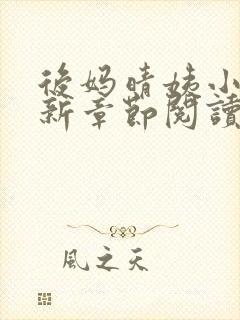 後妈晴姨小
新章節閱讀
風之天